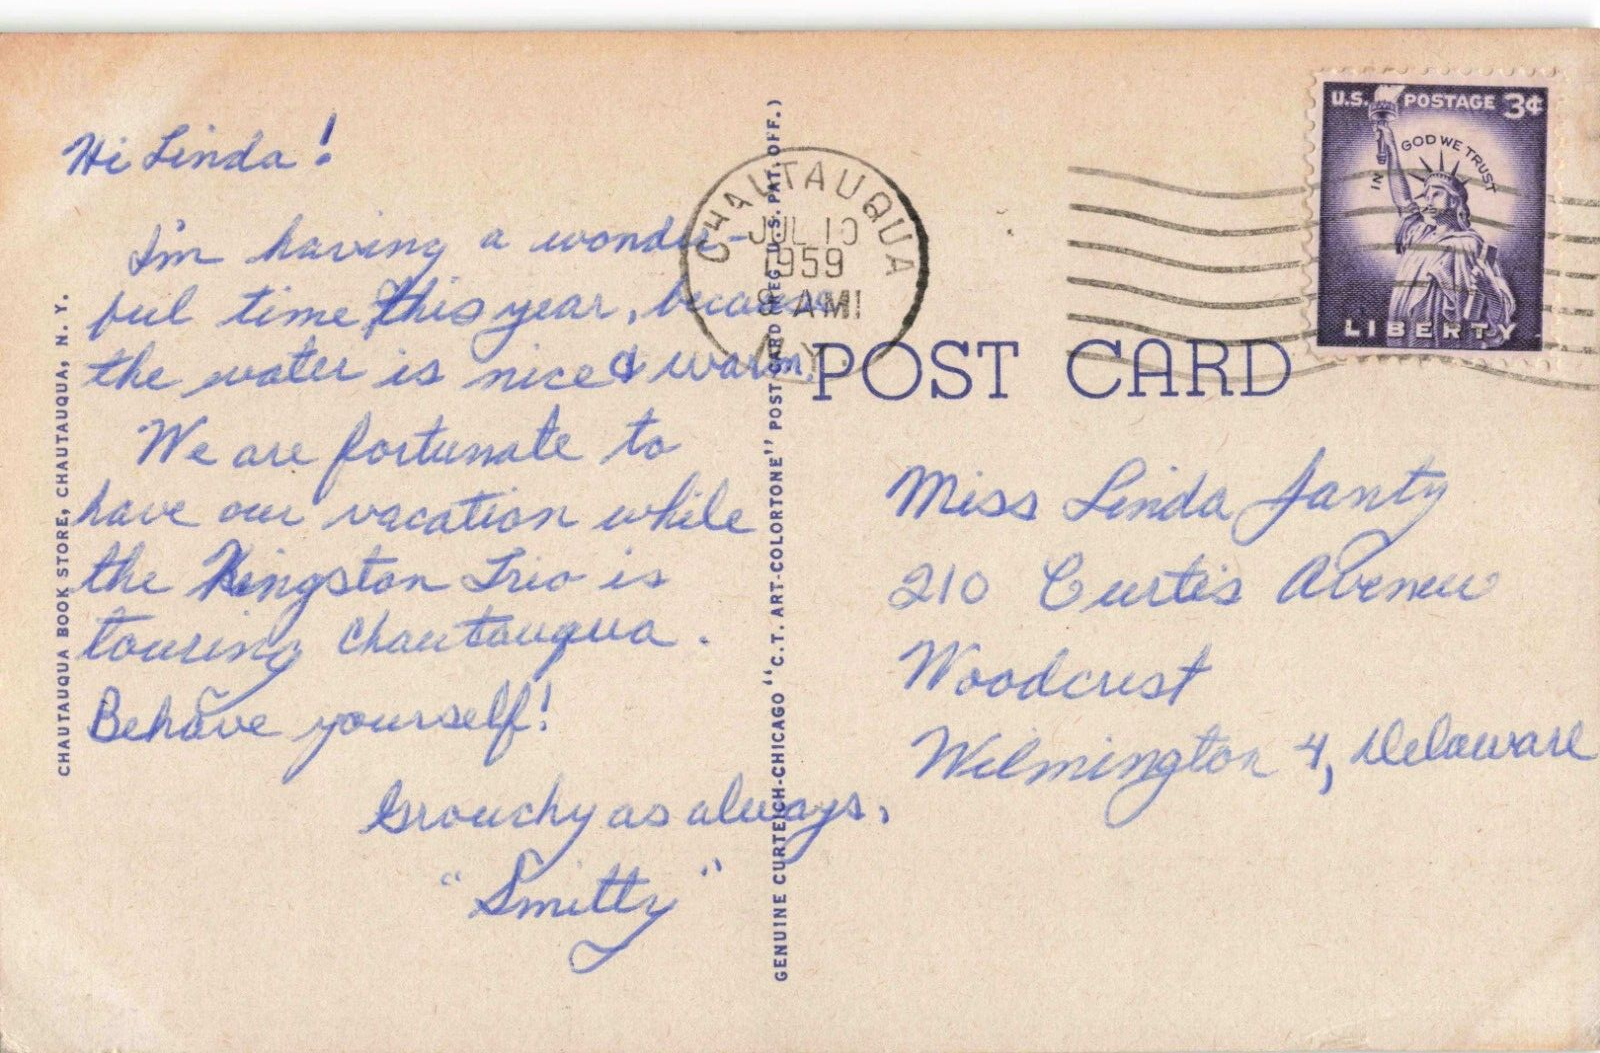 Hi Linda!
I'm having a wonder-
ful time this year, because
the water is nice & warm.
We are fortunate to
have our vacation while
the Kingston Trio is
touring Chautauqua.
Behave yourself!
Grouchy as always,
"Smitty"
CHAUTAUQUA BOOK STORE, CHAUTAUQUA, N. Y.
GENUINE CURTEICH-CHICAGO "C. T. ART-COLORTONE" POST CARD (REG. U.S. PAT. OFF.)
CHAUTAUQUA
JUL 10
1959
AM
N.Y.
U.S. POSTAGE 3¢
IN GOD WE TRUST
LIBERTY
POST CARD
Miss Linda Janty
210 Curtis Avenue
Woodcrest
Wilmington 4, Delaware